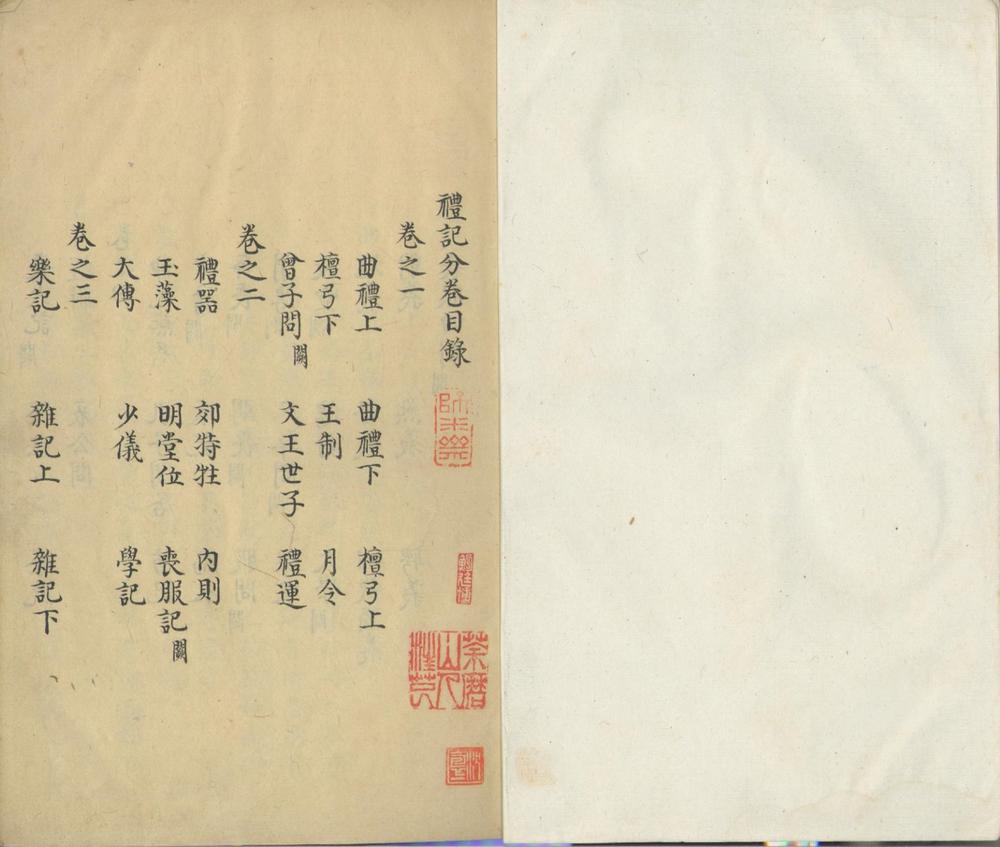 禮記分卷目錄
卷之一
曲禮上 曲禮下 檀弓上
檀弓下 王制 月令
曾子問闕 文王世子 禮運
卷之二
禮器 郊特牲 內則
玉藻 明堂位 喪服記闕
大傳 少儀 學記
卷之三
樂記 雜記上 雜記下